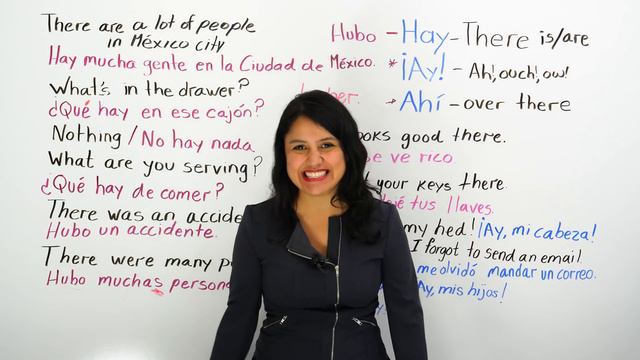 There are a lot of people
in México city
Hay mucha gente en la Ciudad de México.
What's in the drawer?
¿Qué hay en ese cajón?
Nothing / No hay nada
What are you serving?
¿Qué hay de comer?
There was an accide
Hubo un accidente.
There were many p
Hubo muchas persona
Hubo - Hay - There is/are
* ¡Ay! - Ah!, ouch!, ow!
→ Ahí - over there
ber.
ooks good there.
se ve rico
your keys there.
tus llaves.
my hed! ¡Ay, mi cabeza!
I forgot to send an email
me olvidó mandar un correo.
Ay, mis hijos!